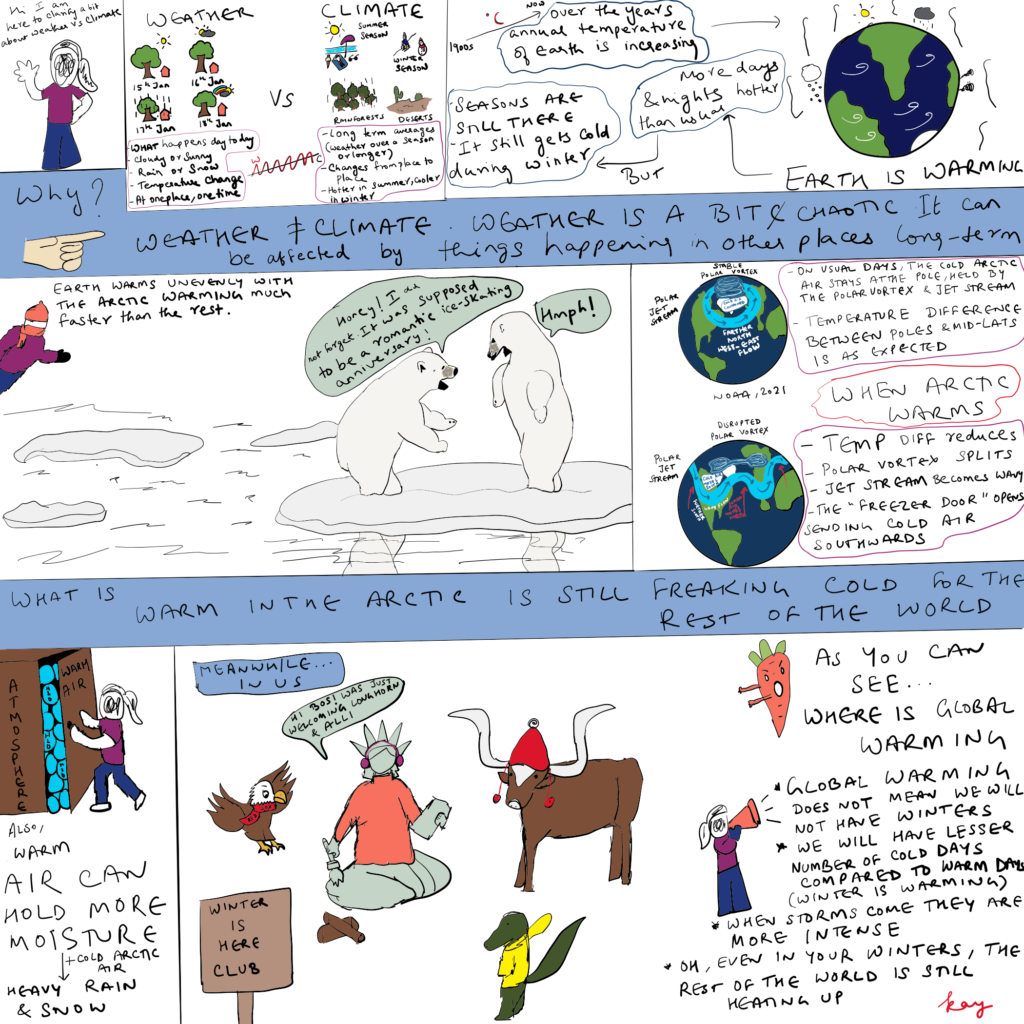 Hi I am
here to clarify a bit
about weather vs climate
WEATHER
15th Jan
16th Jan
17th Jan
18th Jan
WHAT happens day to day
- Cloudy or Sunny
- Rain or Snow
- Temperature change
- At one place, one time
VS
W
C
CLIMATE
SUMMER
SEASON
WINTER
SEASON
RAINFORESTS
DESERTS
- Long term averages
(weather over a season
or longer)
- Changes from place to
place
- Hotter in summer, cooler
in winter
1900s
°C
NOW
over the years
annual temperature
of Earth is increasing
- SEASONS ARE
STILL THERE
- It still gets cold
during winter
More days
& nights hotter
than usual
BUT
EARTH IS WARMING
Why?
WEATHER ≠ CLIMATE. WEATHER IS A BIT CHAOTIC It can
be affected by things happening in other places long-term
EARTH WARMS UNEVENLY WITH
THE ARCTIC WARMING MUCH
faster than the rest.
Honey! I did
not forget It was supposed
to be a romantic ice-skating
anniversary!
Hmph!
STABLE
POLAR VORTEX
POLAR
JET
STREAM
FARTHER
NORTH
WEST-EAST
FLOW
NOAA, 2021
- ON USUAL DAYS, THE COLD ARCTIC
AIR STAYS AT THE POLE, HELD BY
THE POLAR VORTEX & JET STREAM
- TEMPERATURE DIFFERENCE
BETWEEN POLES & MID-LATS
IS AS EXPECTED
WHEN ARCTIC
WARMS
DISRUPTED
POLAR VORTEX
POLAR
JET
STREAM
- TEMP DIFF reduces
- POLAR VORTEX SPLITS
- JET STREAM BECOMES WAVY
- THE "FREEZER DOOR" OPENS
SENDING COLD AIR
SOUTHWARDS
WHAT IS WARM IN THE ARCTIC IS STILL FREAKING COLD FOR THE
REST OF THE WORLD
ATMOSPHERE
WARM
AIR
ALSO,
WARM
AIR CAN
HOLD MORE
MOISTURE
+ COLD ARCTIC
AIR
HEAVY RAIN
& SNOW
MEANWHILE...
IN US
HI BOS! WAS JUST
WELCOMING LONGHORN
& ALLI
WINTER
IS
HERE
CLUB
AS YOU CAN
SEE...
WHERE IS GLOBAL
WARMING
* GLOBAL WARMING
DOES NOT MEAN WE WILL
NOT HAVE WINTERS
* WE WILL HAVE LESSER
NUMBER OF COLD DAYS
COMPARED TO WARM DAYS
(WINTER IS WARMING)
* WHEN STORMS COME THEY ARE
MORE INTENSE
* OH, EVEN IN YOUR WINTERS, THE
REST OF THE WORLD IS STILL
HEATING UP
kay